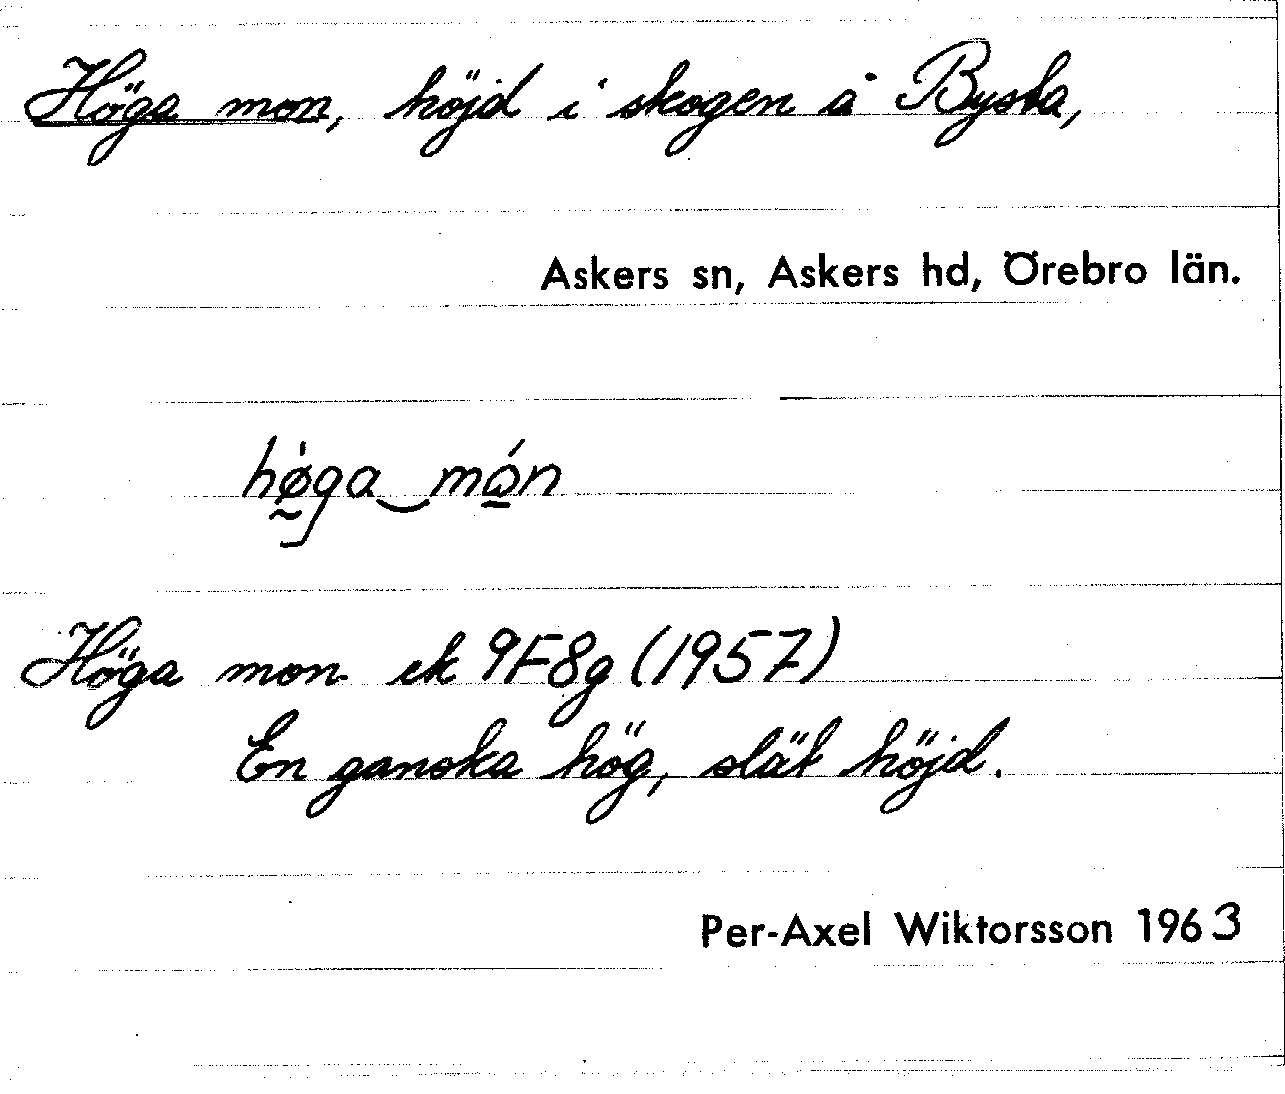 Höga mon, höjd i skogen å Bysta,
Askers sn, Askers hd, Örebro län.
hø̀ga‿món
Höga mon ek 9F8g (1957)
En ganska hög, slät höjd.
Per-Axel Wiktorsson 1963